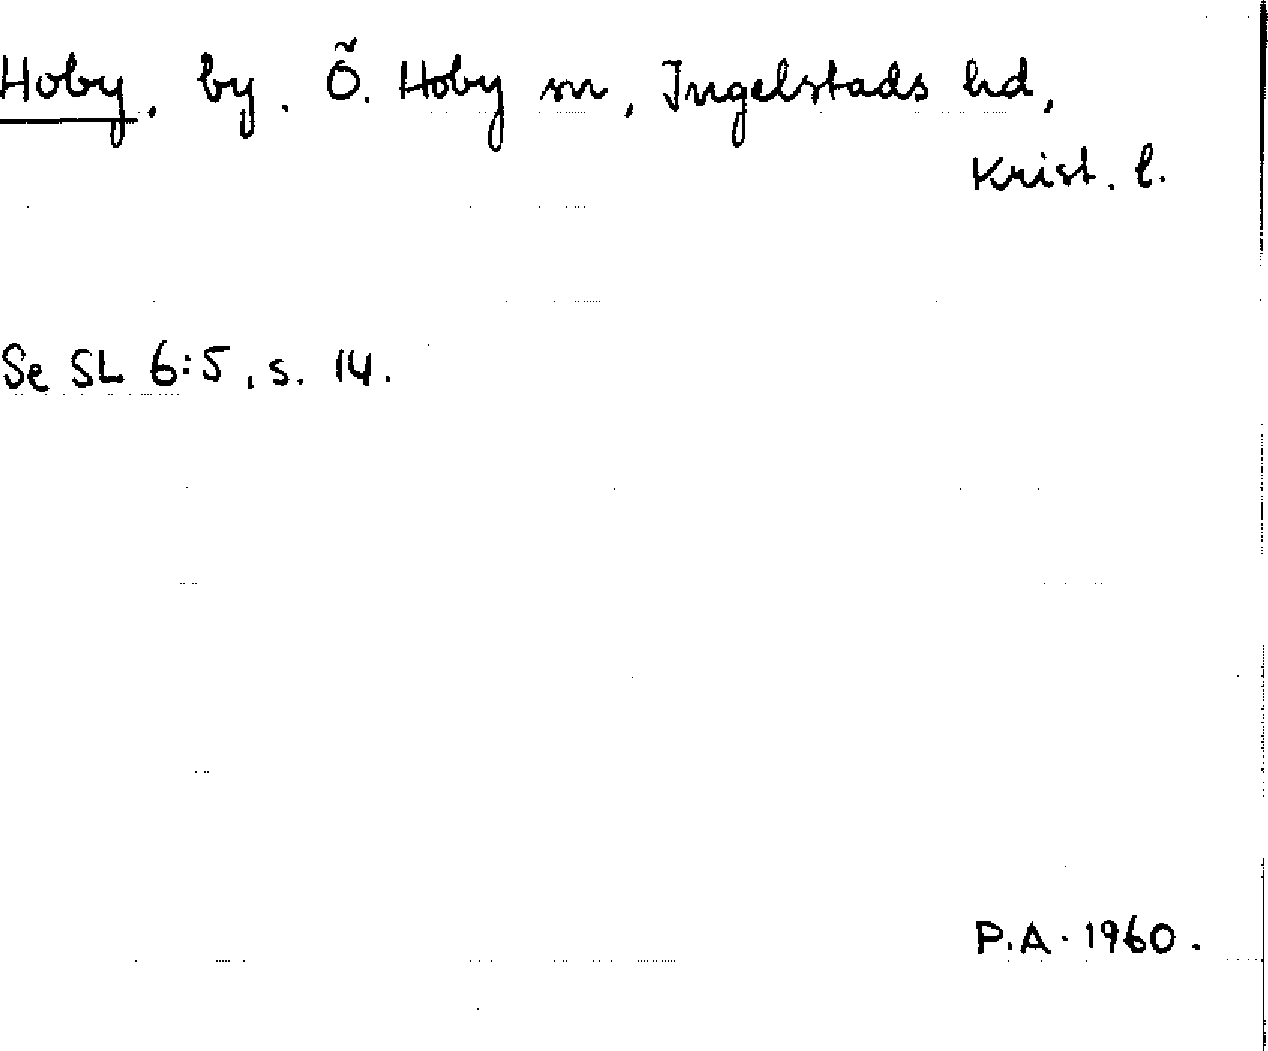 Hoby, by. Ö. Hoby sn, Ingelstads hd,
Krist. l.
Se SL 6:5, s. 14.
P.A. 1960.